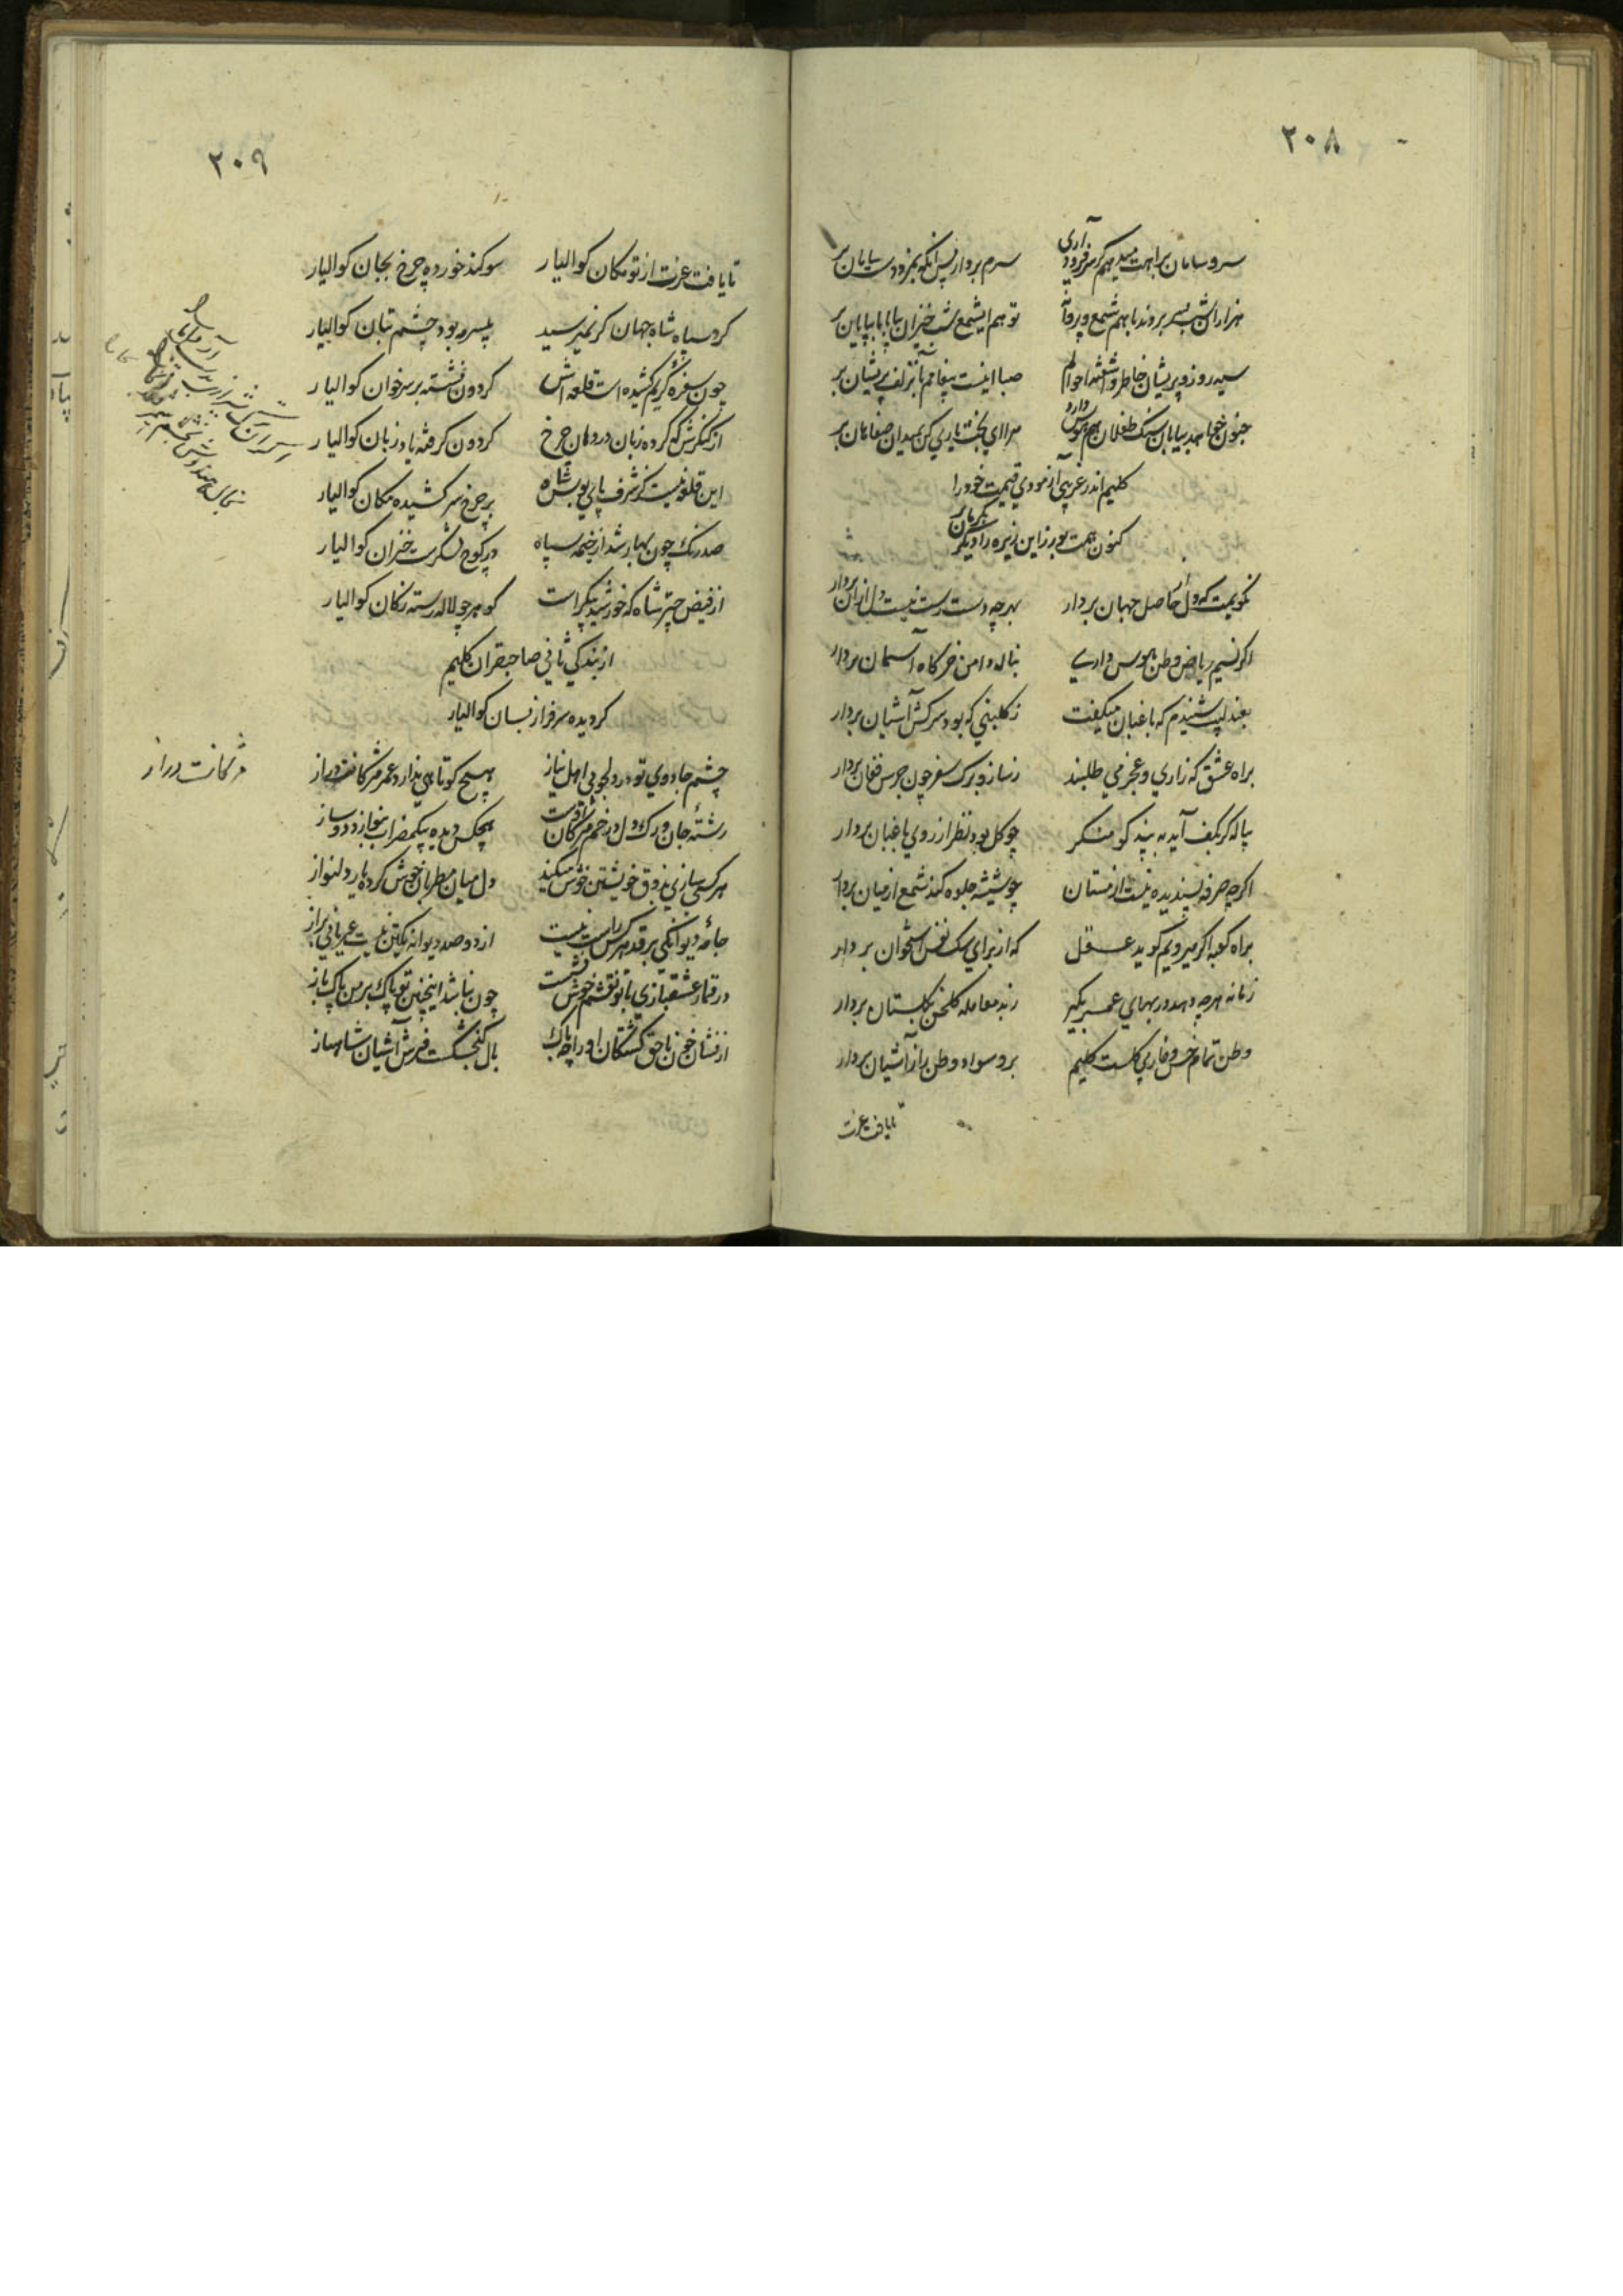 ۲۰۸
سر و سامان براهت میدهم گر سر فرود آری سرم بردار پس آنگه بمزد دست سامان بر
هزاران شب بسر بردند باهم شمع و پروانه تو هم ایشمع شب خیزان بپایان بر
سیه روز و پریشان خاطر و آشفته احوالم صبا اینست پیغامم بآن زلف پریشان بر
جنون خواهد بیابان سنگ طفلان هم هوس دارد مرا ای بخت یاری کن بمیدان صفاهان بر
کلیم اندر غریبی آزمودی قیمت خود را
کنون همت بورز این زیره را دیگر بکرمان بر
نگویمت که دل از حاصل جهان بردار بهرچه دست رست نیست دل از آن بردار
اگر نسیم ریاض وطن هوس داری بناله دامن خرگاه آسمان بردار
بعندلیب شنیدم که باغبان میگفت ز گلبنی که بود سرکش آشیان بردار
براه عشق که زاری و عجز می طلبند ز ساز و برگ سفر چون جرس فغان بردار
پیاله گر بکف آید به پند گو منگر چو گل بود نظر از روی باغبان بردار
اگرچه صرفه پسندیده نیست از مستان چو شیشه جلوه کند شمع از میان بردار
براه کعبه اگر میرویم گوید عقل که از برای سگ نفس استخوان بردار
زمانه هرچه دهد در بهای عمر بگیر ز بد معامله گلخن بگلستان بردار
وطن تمام خس و خار بی گلست کلیم برو سواد وطن را ز آشیان بردار
تا یافت عزت
۲۰۹
تا یافت عزت از تو مکان کوالیار سوکند خورده چرخ بجان کوالیار
گرد سپاه شاه جهان گر نمیرسید بی سرمه بود چشم بتان کوالیار
چون سفره کریم کشیده است قلعه اش گردون نشسته بر سر خوان کوالیار
از کنگرش که کرده زبان در دهان چرخ گردون گرفته یاد زبان کوالیار
این قلعه نیست کز شرف پای بوس شاه بر چرخ سر کشیده مکان کوالیار
صد رنگ چون بهار شد از خیمه سپاه در کوچ لشکرست خزان کوالیار
از فیض چتر شاه که خورشید پیکر است گوهر چو لاله رسته ز کان کوالیار
از بندگی ثانی صاحبقران کلیم
گردیده سرفراز بسان کوالیار
چشم جادوی تو در دلجویی اهل نیاز هیچ کوتاهی ندارد عمر مژگانت دراز
مژگانت دراز
رشته جان و رگ دل در خم مژگان تست هیچکس دیده بیک مضراب بنوازد دو ساز
هر کسی سازی بذوق خویشتن خوش میکند دل میان مطربان خوش کرده یار دلنواز
جامه دیوانگی بر قد هر کس راست نیست از دو صد دیوانه یکتن نیست عریانی براز
در قمار عشقبازی با تو نقشم خوش نشست چون نباشد اینچنین تو پاک بر من پاک باز
از نشان خون ناحق کشتگان او را چه باک بال گنجشکست فرش آشیان شاهباز